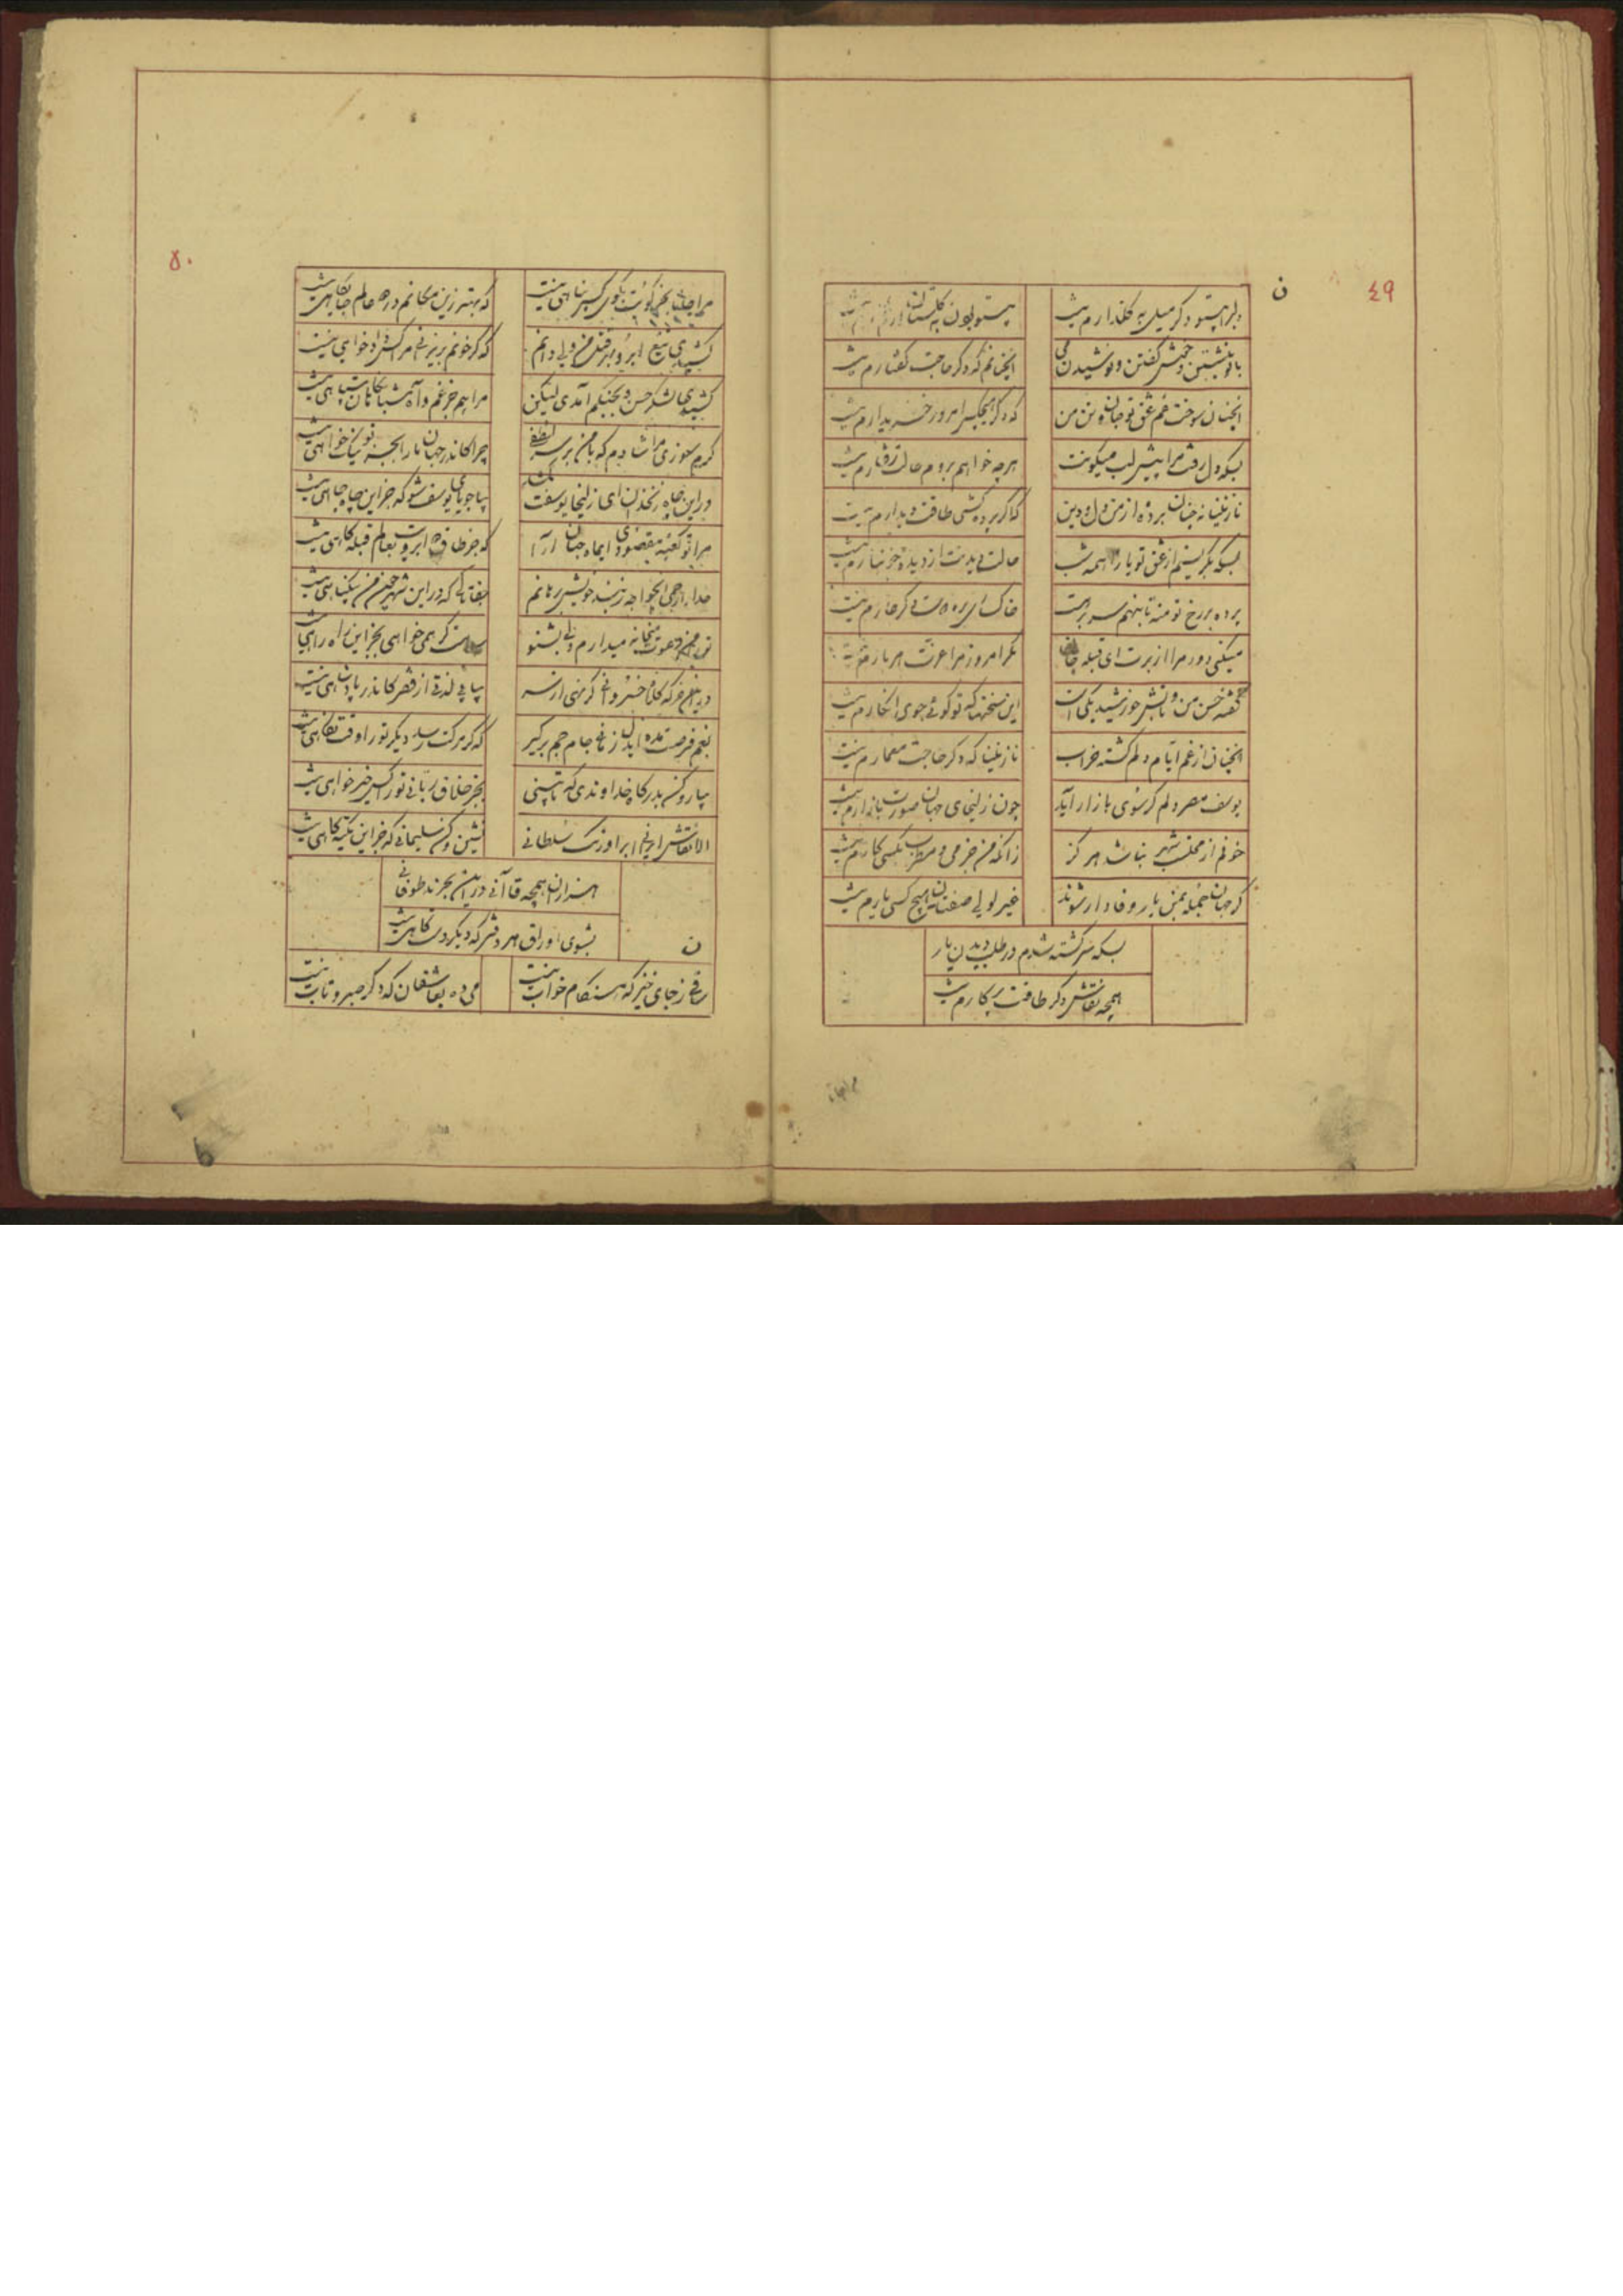 ٤٩
ن
دلبرا بیتو دگر میل به گلزارم نیست
بیتو بودن به گلستان
با تو بنشستن و خوش گفتن و نوشیدن می
آنچنانم که دگر حاجت گفتارم نیست
آنچنان سوخت غم عشق تو جان و تن من
که دگر هیچکس امروز خریدارم نیست
بسکه دل رفت مرا پیش لب میگونت
هرچه خواهم بروم حالت رفتارم نیست
نازنینا نه چنان برده از من دل و دین
که اگر پرده کشی طاقت دیدارم نیست
بسکه بگریستم از عشق تو یارا همه شب
حالت دیدنت از دیده خونبارم نیست
پرده بر رخ تو منه تا بنهم سر برهت
خاک ره دگر عارم نیست
میکنی دور مرا از برت ای قبله جان
مگر امروز مرا عزت هر بارم نیست
قصه حسن من و تابش خورشید یکی است
این سخنها که تو گوئی جوی انکارم نیست
آنچنان از غم ایام دلم گشته خراب
نازنینا که دگر حاجت معمارم نیست
یوسف مصر دلم گر سوی بازار آید
چون زلیخای جهان صورت بازارم نیست
خوفم از محتسب شهر نباشد هرگز
زانکه من جز می و مطرب بکسی کارم نیست
گر جهان جمله بمن یار و فادار شوند
غیر لولی صفتان هیچ کسی یارم نیست
بسکه سرگشته شدم در طلب دیدن یار
همچه نقاش دگر طاقت پرگارم نیست
مرا جانا
٥٠
مرا جانا بجز کویت بکوی کس پناهی نیست
که بهتر زین مکانم در همه عالم جایگاهی نیست
کشیدی تیغ ابرو بهر قتل من ولی دانم
که گر خونم بریزی مر مرا کس دادخواهی نیست
کشیدی لشکر حسن و بجنگم آمدی لیکن
مرا هم جز غم و آه شبانگاهان سپاهی نیست
گرم سوزی مرا شادم که با من بر سر لطفی
چرا کاندر جهان ما را بجز تو نیکخواهی نیست
در این چاه زنخدان ای زلیخا یوسفت
بیا جویای یوسف شو که جز این چاه چاهی نیست
مرا تو کعبه مقصودی ایماه جهان آرا
که جز طاق ابرویت بعالم قبله‌گاهی نیست
خدا را رحمی ایخواجه ز بند خویش برهانم
بفتانی که در این شهر چون من بیگناهی نیست
تو را من دعوت میخانه میدارم ولی بشنو
سلامت گر همی خواهی بجز این راه راهی نیست
در این خرگه کلاه خسروانی گر نهی از سر
بیابی لذتی از فقر کاندر پادشاهی نیست
بغم فرصت مده ایدل ز ساقی جام جم برگیر
که گر مرگت رسد دیگر تو را وقت نگاهی نیست
بیا رو کن بدرگاه خداوندی که تا بینی
بجز خلاق ربانی تو را کس خیرخواهی نیست
الا نقاش ایرانی بر اورنگ سلطانی
نشین و کن سلیمانی که جز این تکیه‌گاهی نیست
هزاران همچه قاآنی در این بحرند طوفانی
بشوی اوراق هر دفتر که دیگر دستگاهی نیست
ن
ساقی ز جای خیز که هنگام خواب نیست
می ده بعاشقان که دگر صبر و تاب نیست